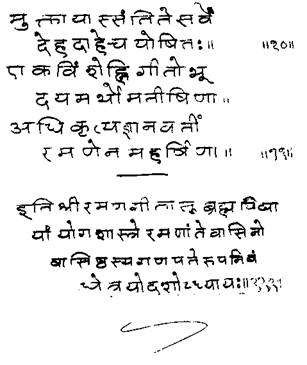 मुक्तायास्संति ते सर्वे
देहदाहे च योषितः॥ ॥१०॥
एकविंशेह्नि गीतोभू
दयमर्थो मनीषिणा॥
अधिकृत्य ज्ञानवतीं
रमणेन महर्षिणा॥ ॥११॥
इति श्रीरमणगीतासु ब्रह्मविद्या
यां योगशास्त्रे रमणांतेवासिनो
वासिष्ठस्य गणपतेरुपनिबं
धे त्रयोदशोध्यायः॥१३॥